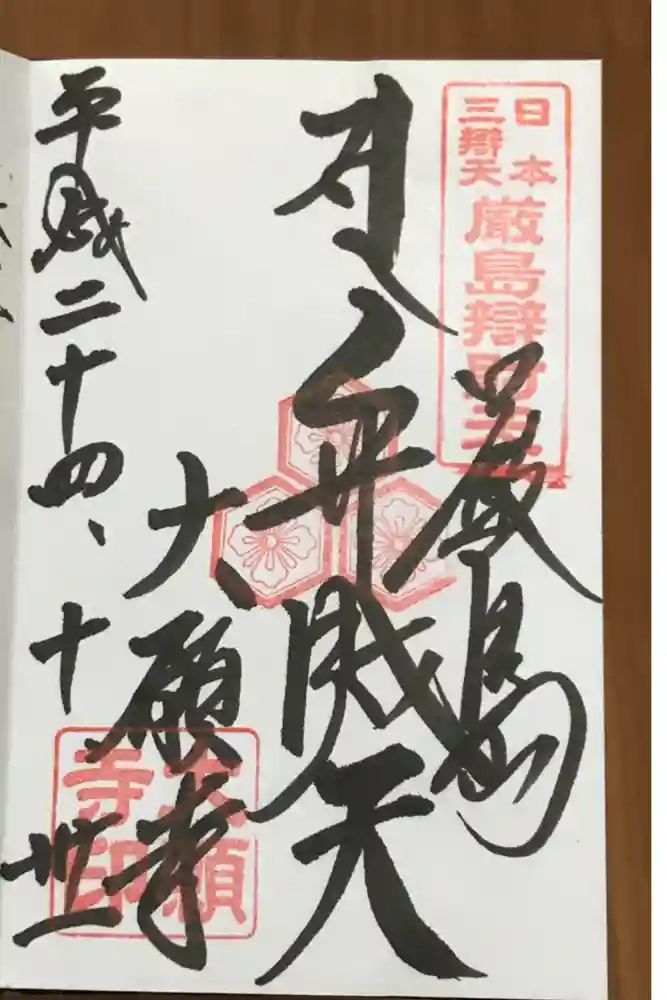 日本
三辯天
厳島辯財天
厳島
弁財天
大願寺
大願寺印
平成二十四、十、丗一